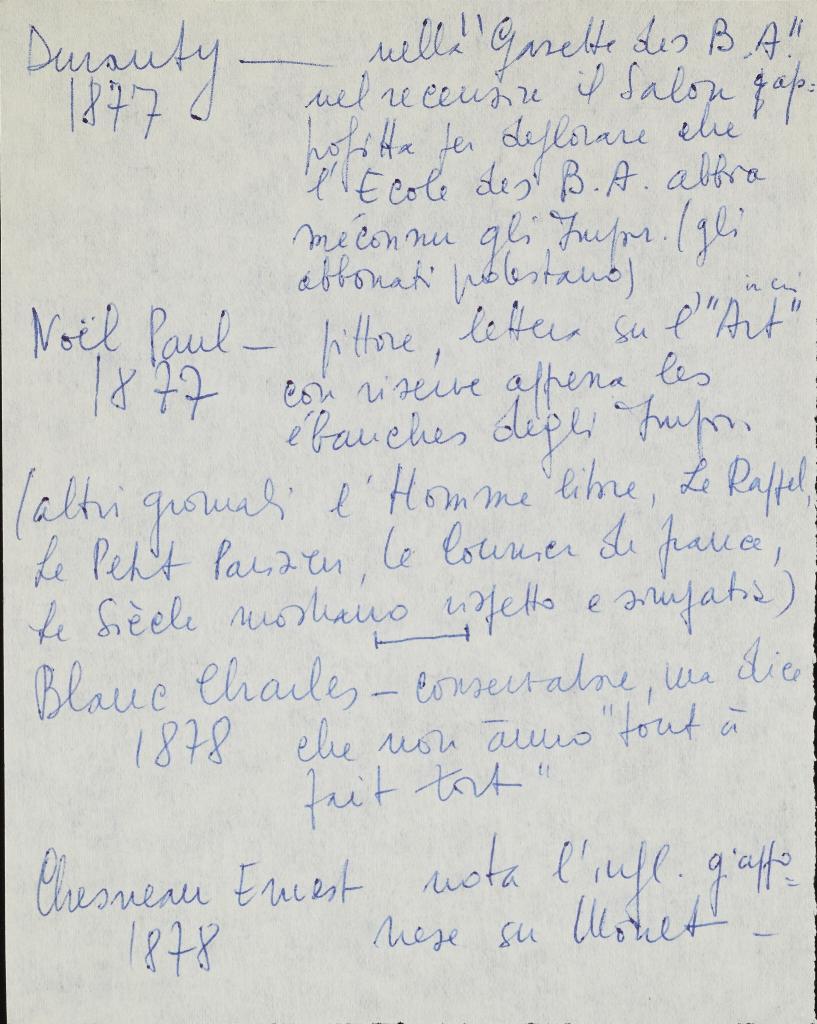 Duranty — nella "Gazette des B.A."
1877 nel recensire il Salon ap=
profitta per deplorare che
l'Ecole des B.A. abbia
méconnu gli Impr. (gli
abbonati protestano)
Noël Paul — pittore, lettera su l'"Art" in cui
1877 con riserve appena les
ébauches degli Impr.
(altri giornali l'Homme libre, Le Rappel,
Le Petit Parisien, le Courrier de france,
Le Siècle mostrano rispetto e simpatia)
Blanc Charles — conservatore, ma dice
1878 che non ànno "tout à
fait tort"
Chesneau Ernest nota l'infl. giappo=
1878 nese su Monet —